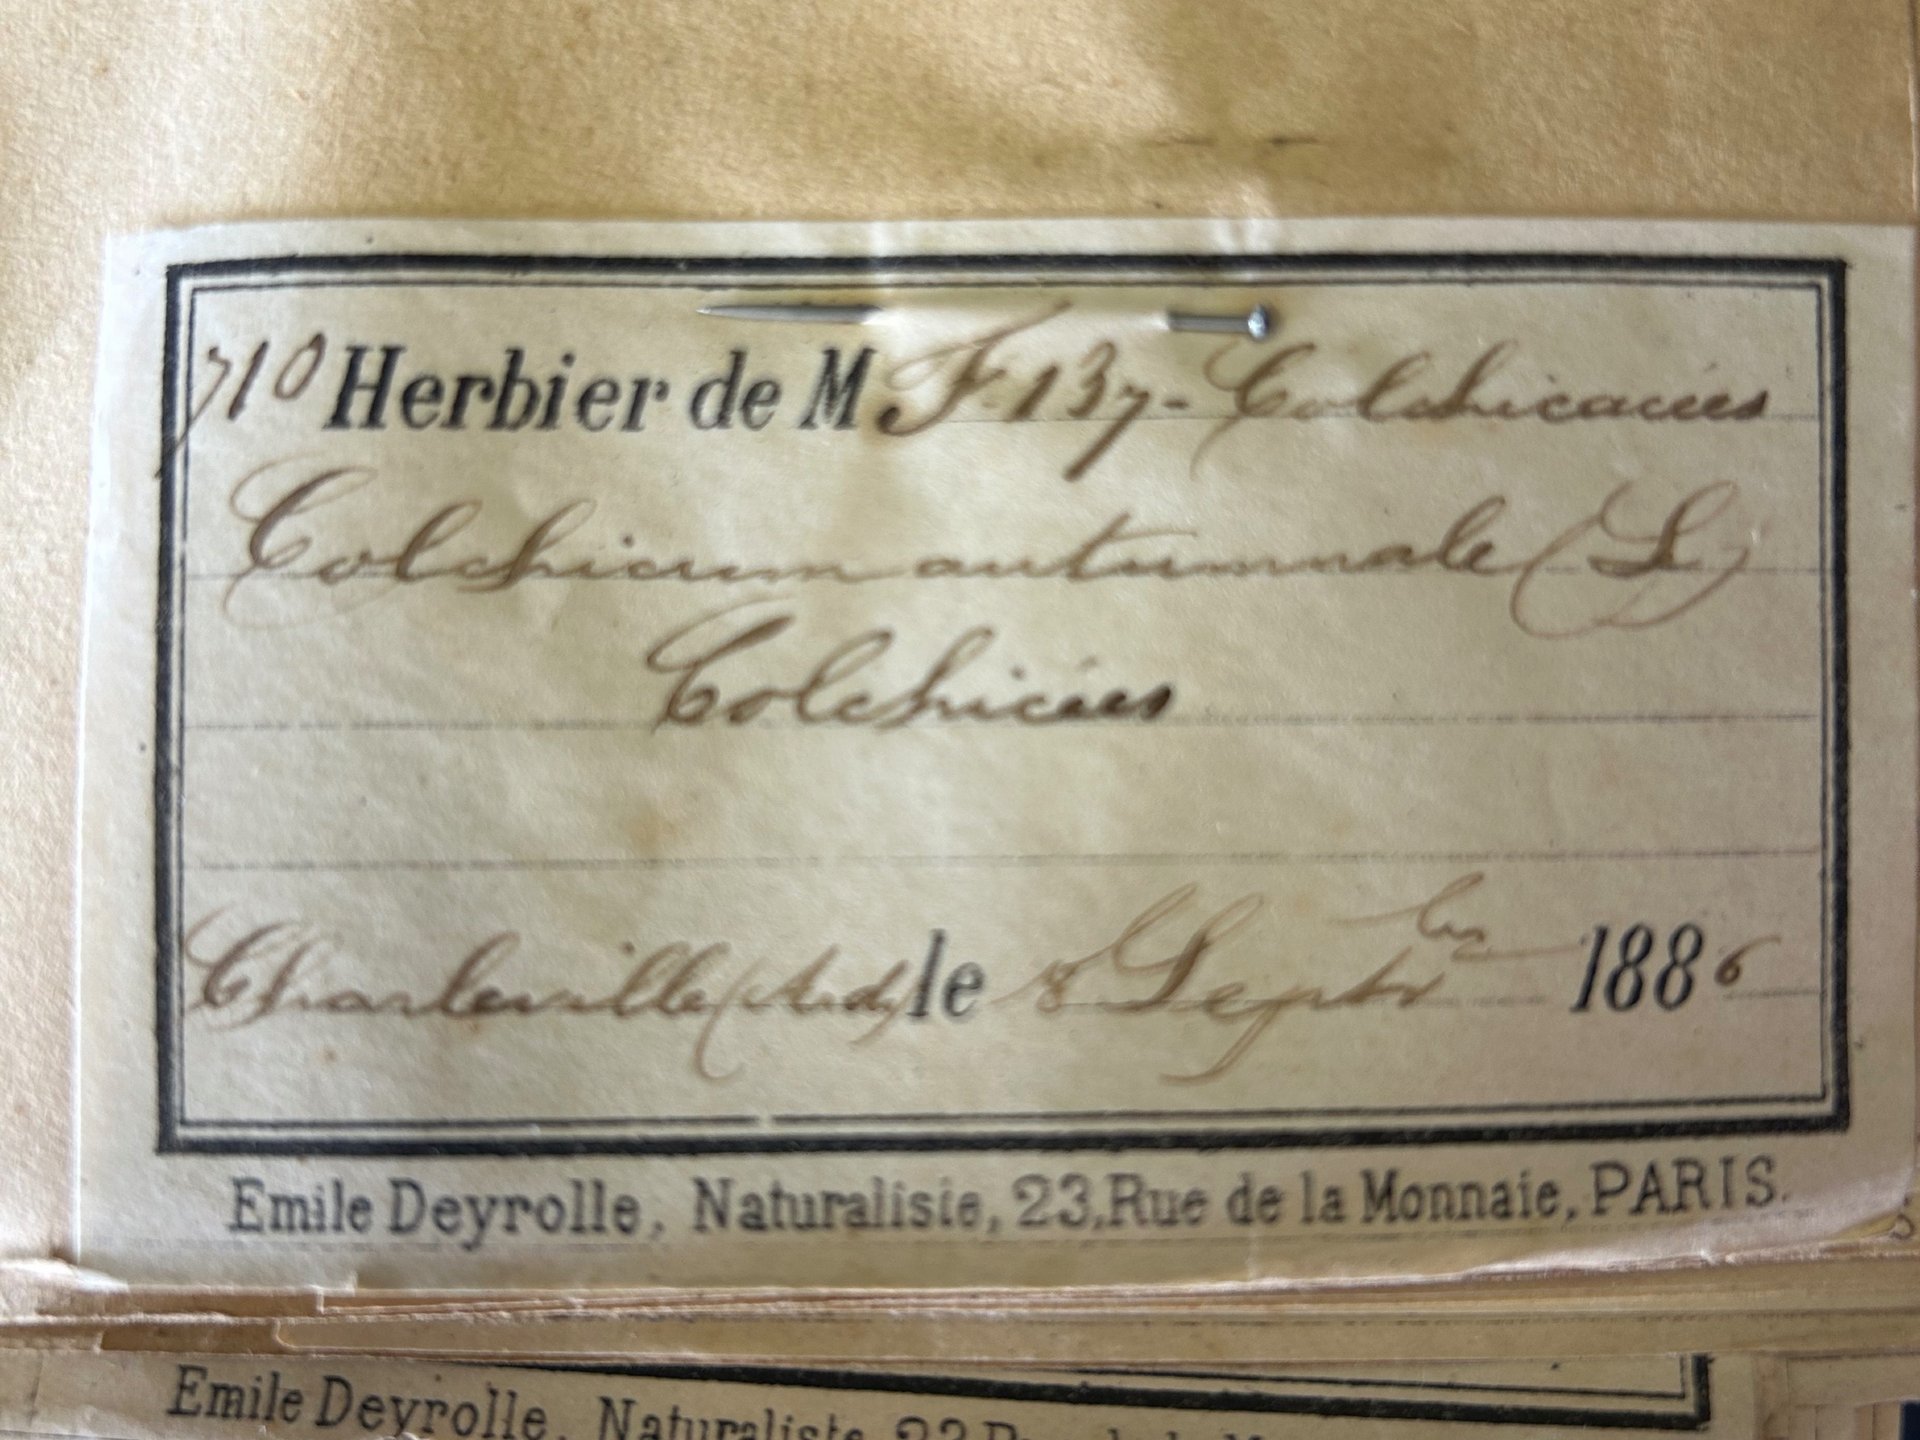 710 Herbier de M F. 137 - Colchicacées
Colchicum autumnale (L)
Colchicées
Charleville (Ard) le 8 Septbre 1886
Emile Deyrolle, Naturaliste, 23, Rue de la Monnaie, PARIS.
Emile Deyrolle, Naturaliste, 23 Rue de la M